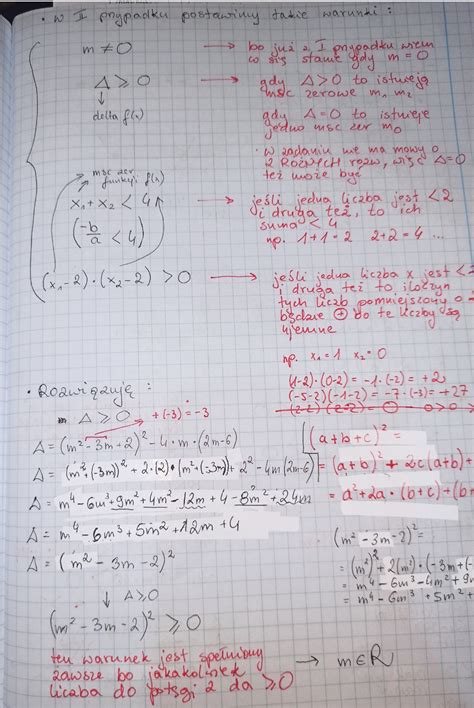 • w II przypadku postawimy takie warunki :
m ≠ 0 → bo już z I przypadku wiem
co się stanie gdy m = 0
Δ ⩾ 0 → gdy Δ > 0 to istnieją
msc zerowe m₁ m₂
↓
delta f(x)
gdy Δ = 0 to istnieje
jedno msc zer m₀
• w zadaniu nie ma mowy o
2 RÓŻNYCH rozw, więc Δ=0
też może być
msc zer
funkcji f(x)
x₁ + x₂ < 4 → jeśli jedna liczba jest < 2
i druga też, to ich
suma < 4
(-b/a < 4)
np. 1+1=2 2+2=4 ...
(x₁-2)·(x₂-2) > 0 → jeśli jedna liczba x jest <
i druga też to iloczyn
tych liczb pomniejszony o
będzie ⊕ bo te liczby są
ujemne
np. x₁=1 x₂=0
(1-2)·(0-2) = -1·(-2) = +2
(-5-2)(-1-2) = -7·(-3) = +27
• Rozwiązuję :
Δ ⩾ 0
+(-3) = -3
Δ = (m² - 3m + 2)² - 4·m·(2m-6)
Δ = (m² + (-3m))² + 2·(2)·(m²·(-3m)) + 2² - 4m(2m-6)
Δ = m⁴ - 6m³ + 9m² + 4m² - 12m + 4 - 8m² + 24m
Δ = m⁴ - 6m³ + 5m² + 12m + 4
Δ = (m² - 3m - 2)²
(a+b+c)² =
= (a+b)² + 2c(a+b) +
= a² + 2a·(b+c) + (b+
(m² - 3m - 2)² =
= (m²)² + 2(m²)·(-3m + (-
= m⁴ - 6m³ - 4m² + 9m
= m⁴ - 6m³ + 5m² +
↓ Δ ⩾ 0
(m² - 3m - 2)² ⩾ 0
ten warunek jest spełniony
zawsze bo jakakolwiek
liczba do potęgi 2 da ⩾ 0
→ m ∈ R